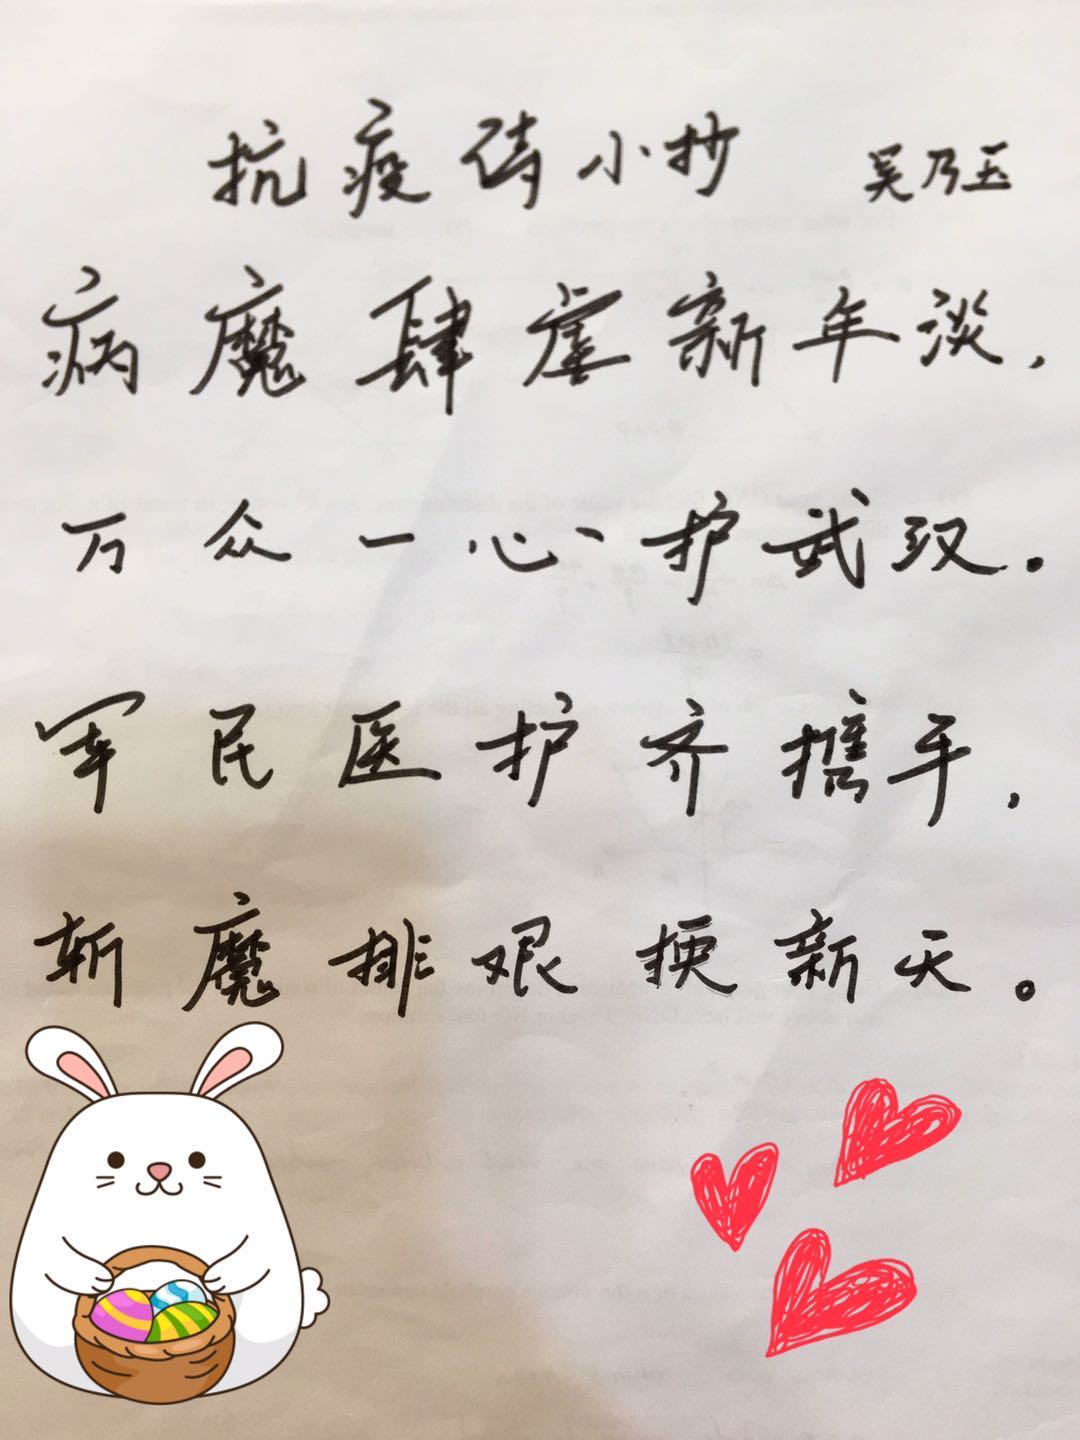 抗疫诗小抄 吴乃玉
病魔肆虐新年淡,
万众一心护武汉。
军民医护齐携手,
斩魔排艰换新天。